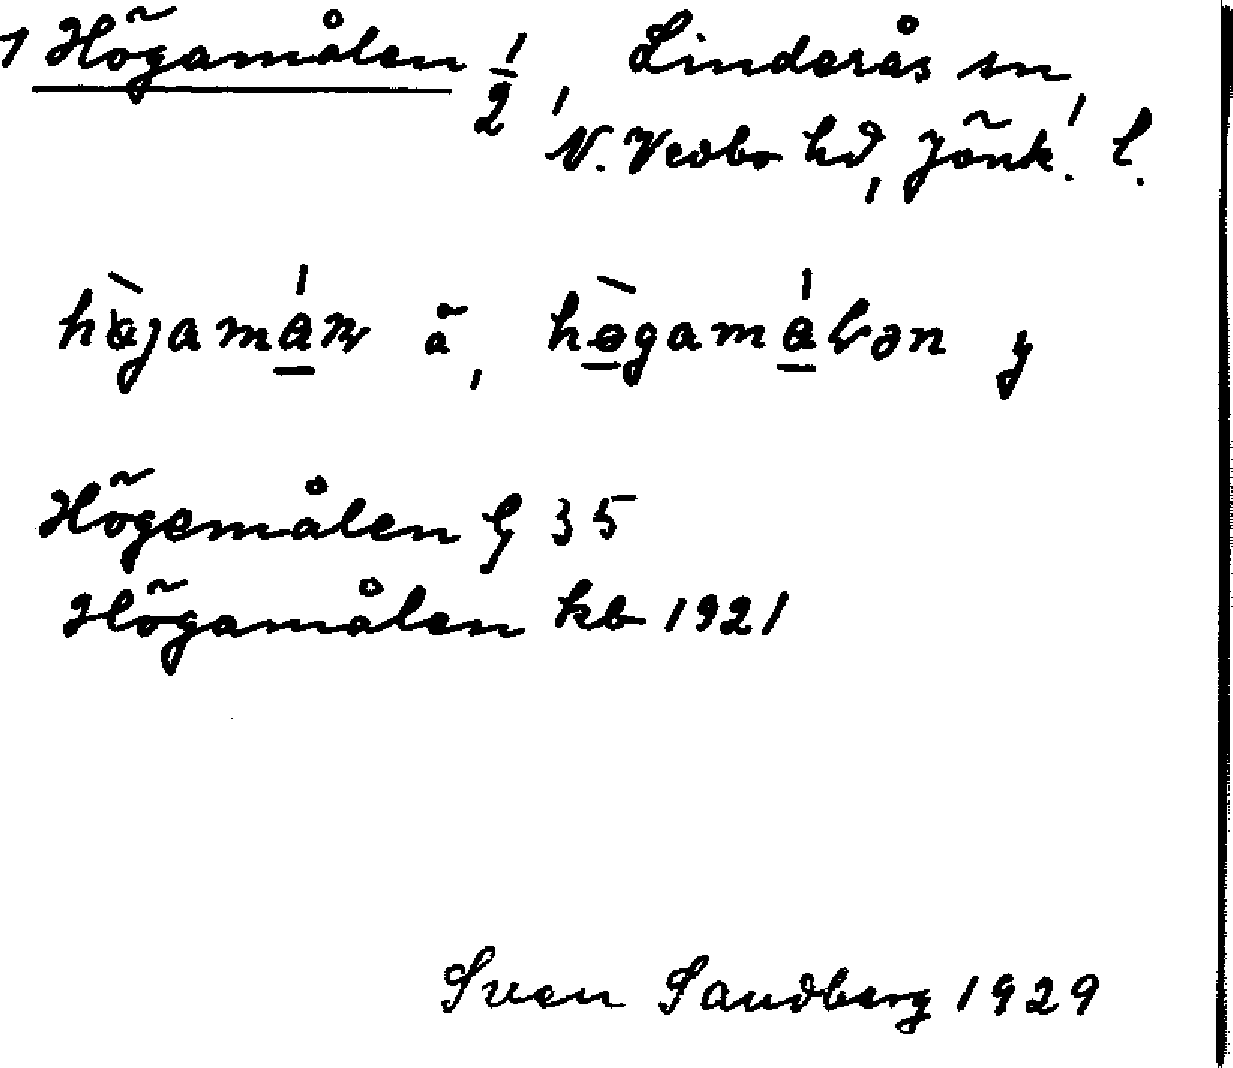 1 Högamålen 1/2, Linderås sn,
N. Vedbo hd, Jönk. l.
högamålen y
Högemålen G 35
Högamålen kb 1921
Sven Sandberg 1929